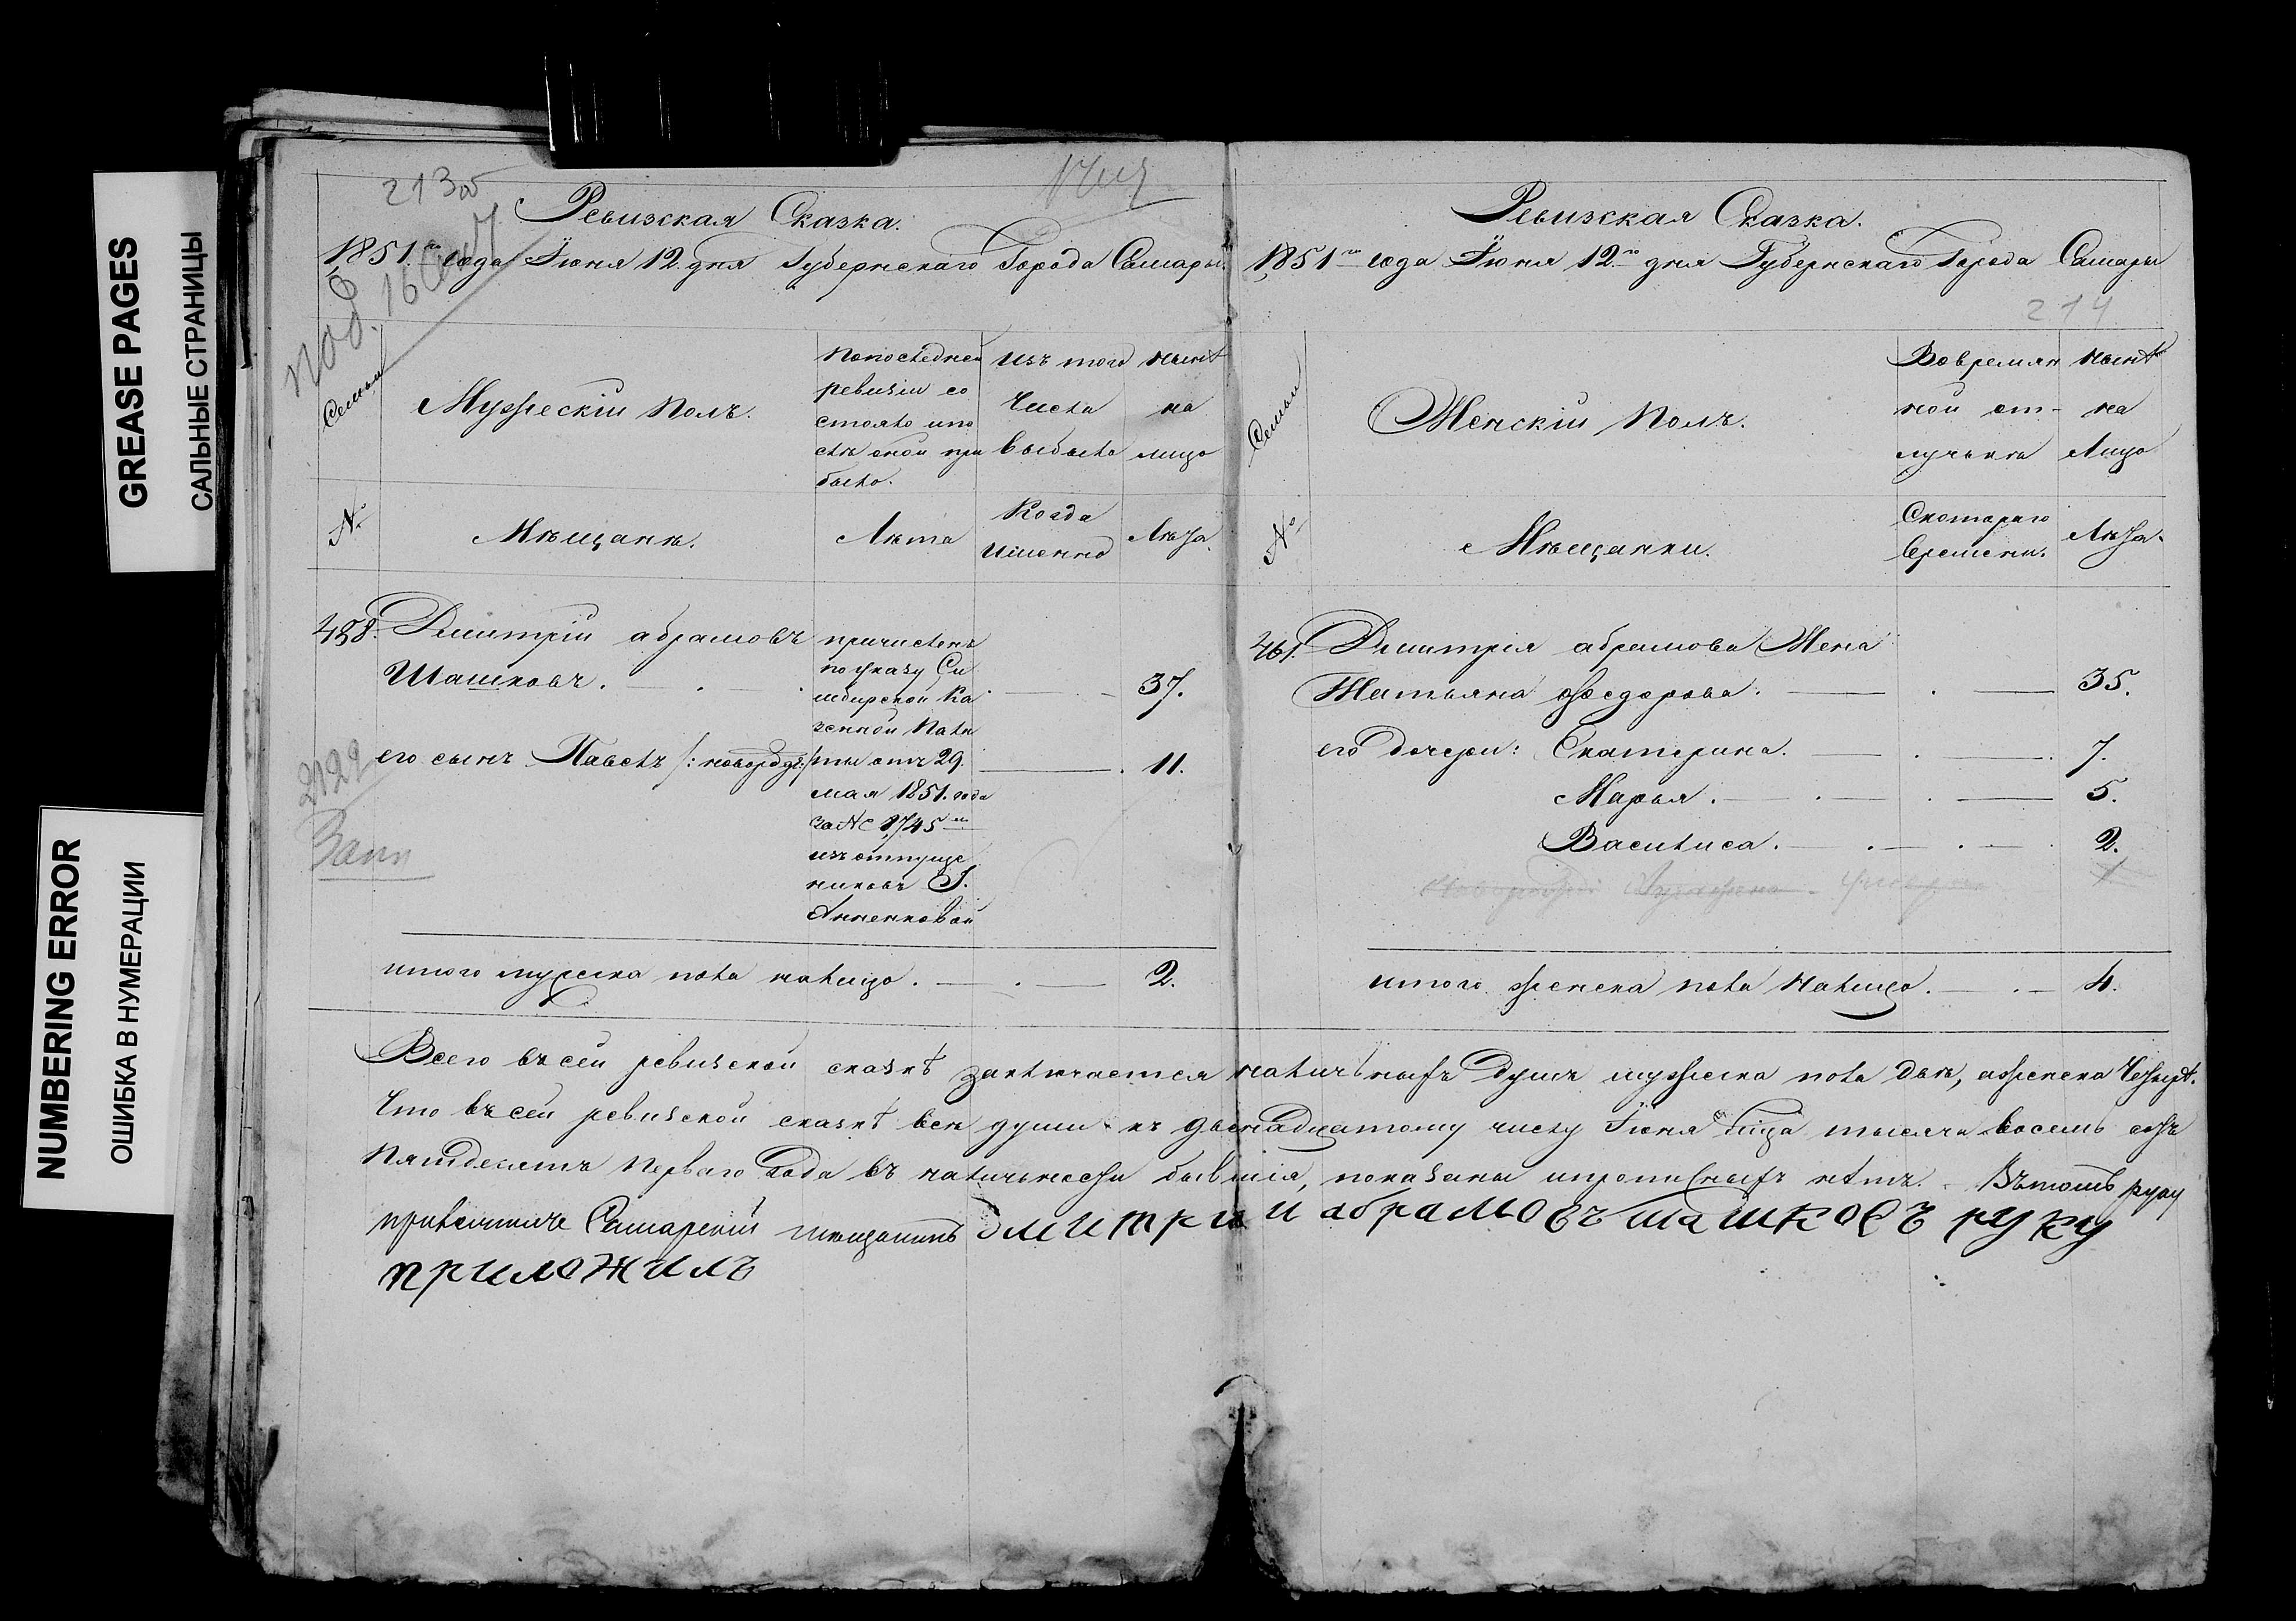 GREASE PAGES
САЛЬНЫЕ СТРАНИЦЫ
NUMBERING ERROR
ОШИБКА В НУМЕРАЦИИ
213об
Ревизская Сказка.
1851го года Іюня 12 дня Губернскаго Города Самары.
Семьи
Мужескій Полъ.
По последней
ревизіи со
стояло и по
слѣ оной при
было.
изъ того
числа
выбыло
нынѣ
на
лицо
№
Мѣщанѣ.
Лѣта
Когда
именно
Лѣта.
458. Дмитрій Абрамовъ
Шашковъ. 37.
его сынъ Павелъ 11.
причисленъ
по указу Си
мбирской Ка
зенной Пала
ты отъ 29
мая 1851. года
за № 1745м
изъ отпуще
никовъ Г.
Анненковой
2129
итого мужеска пола налицо. 2.
Ревизская Сказка.
1851го года Іюня 12го дня Губернскаго Города Самары
214
Семьи
Женскій Полъ.
Во времян
ной от-
лучькѣ
нынѣ
на
Лицо
№
Мѣщанки.
Скотораго
времени.
Лѣта.
461. Дмитрія Абрамова Жена
Татьяна Федорова. 35.
его дочери: Екатерина. 7.
Марья. 5.
Василиса. 2.
итого женска пола налицо. 4.
Всего въ сей ревизской сказкѣ заключается наличьныхъ душъ мужеска пола двѣ, а женска Четырѣ.
Что въ сей ревизской сказкѣ всѣ души къ двѣнадцатому числу Іюня тысяча восемь сотъ
пятдесятъ перваго года въ наличьности бывшія, показаны и прописныхъ нѣтъ. Въ томъ руку
Самарскій мѣщанинъ дмитрии абрамовъ шашковъ руку
приложилъ